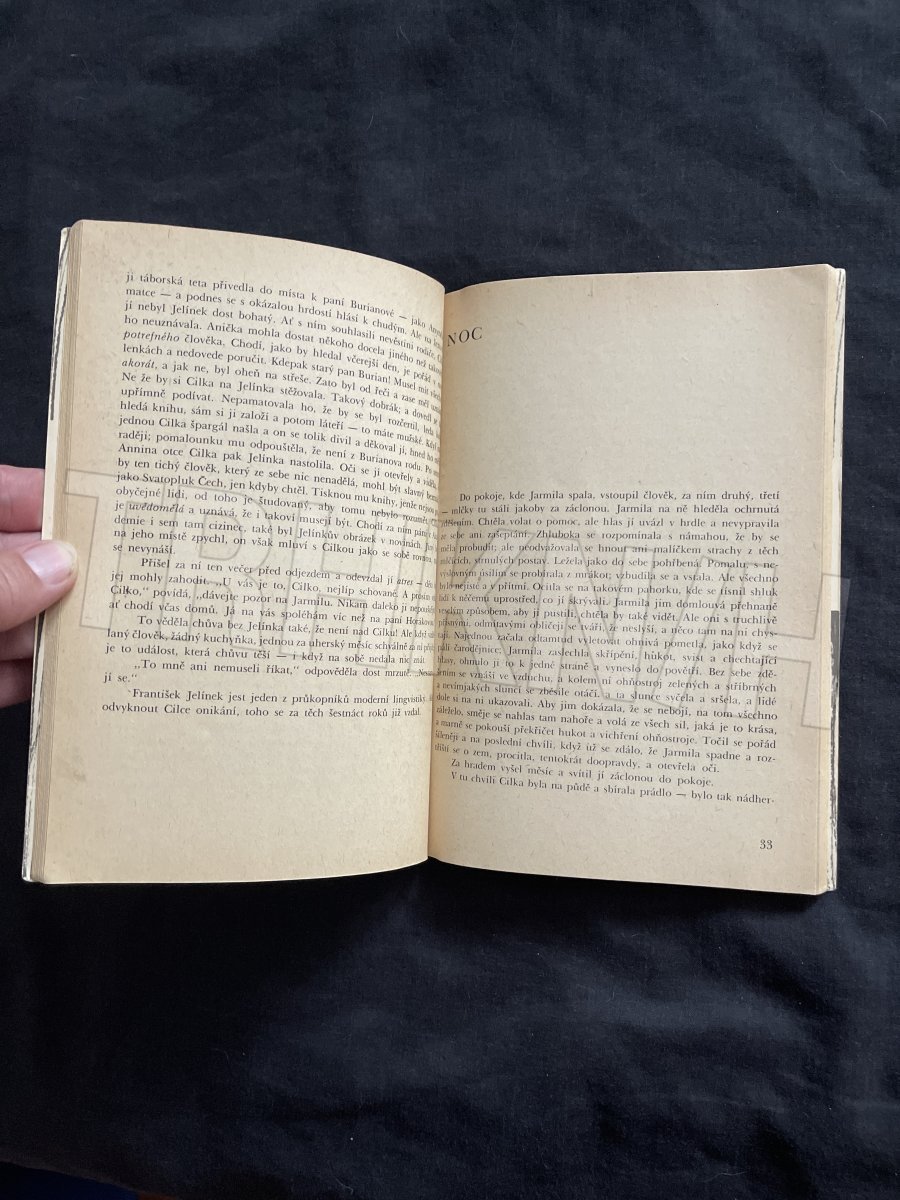 ji táborská teta přivedla do místa k paní Burianové — jako
matce — a podnes se s okázalou hrdostí hlásí k chudým. Ale na
jí nebyl Jelínek dost bohatý. Ať s ním souhlasili nevěstini rodiče,
ho neuznávala. Anička mohla dostat někoho docela jiného než
potrefného člověka. Chodí, jako by hledal včerejší den, je pořád v
lenkách a nedovede poručit. Kdepak starý pan Burian! Musel mít
akorát, a jak ne, byl oheň na střeše. Zato byl od řeči a zase měl
Ne že by si Cilka na Jelínka stěžovala. Takový dobrák; a dovedl se
upřímně podívat. Nepamatovala ho, že by se byl rozčertil, leda
hledá knihu, sám si ji založí a potom láteří — to máte mužské. Když
jednou Cilka špargál našla a on se tolik divil a děkoval jí, hned ho
raději; pomalounku mu odpouštěla, že není z Burianova rodu. Po
Annina otce Cilka pak Jelínka nastolila. Oči se jí otevřely a
by ten tichý člověk, který ze sebe nic nenadělá, mohl být slavný
jako Svatopluk Čech, jen kdyby chtěl. Tisknou mu knihy, jenže nejsou
obyčejné lidi, od toho je študovaný, aby tomu nebylo rozumět.
je uvědomělá a uznává, že i takoví musejí být. Chodí za ním páni z
demie i sem tam cizinec, také byl Jelínkův obrázek v novinách.
na jeho místě zpychl, on však mluví s Cilkou jako se sobě rovnou,
se nevynáší.
Přišel za ní ten večer před odjezdem a odevzdal jí atres —
jej mohly zahodit. „U vás je to, Cilko, nejlíp schované. A prosím
Cilko,“ povídá, „dávejte pozor na Jarmilu. Nikam daleko ji
ať chodí včas domů. Já na vás spoléhám víc než na paní
To věděla chůva bez Jelínka také, že není nad Cilku! Ale když
laný člověk, žádný kuchyňka, jednou za uherský měsíc schválně za ní
je to událost, která chůvu těší — i když na sobě nedala nic znát.
„To mně ani nemuseli říkat,“ odpověděla dost mrzutě.
jí se.“
František Jelínek jest jeden z průkopníků moderní lingvistiky,
odvyknout Cilce onikání, toho se za těch šestnáct roků již vzdal.
NOC
Do pokoje, kde Jarmila spala, vstoupil člověk, za ním druhý, třetí
— mlčky tu stáli jakoby za záclonou. Jarmila na ně hleděla ochrnutá
Chtěla volat o pomoc, ale hlas jí uvázl v hrdle a nevypravila
ze sebe ani zašeptání. Zhluboka se rozpomínala s námahou, že by se
měla probudit; ale neodvažovala se hnout ani malíčkem strachy z těch
mlčících, strnulých postav. Ležela jako do sebe pohřbena. Pomalu, s ne-
výslovným úsilím se probírala z mrákot; vzbudila se a vstala. Ale všechno
bylo nejisté a v přítmí. Ocitla se na takovém pahorku, kde se rojsnil shluk
lidí k něčemu uprostřed, co jí skrývali. Jarmila jim domlouvá přehnaně
veselým způsobem, aby ji pustili, chtěla by také vidět. Ale oni s truchlivě
přísnými, odmítavými obličeji se tváří, že neslyší, a něco tam na ni chys-
tají. Najednou začala odtamtud vyletovat ohnivá pometla, jako když se
pálí čarodějnice; Jarmila zaslechla skřípění, hůkot, svist a chechtající
hlasy, ohnulo ji to k jedné straně a vyneslo do povětří. Bez sebe zdě-
šením se vznáší ve vzduchu, a kolem ní ohňostroj zelených a stříbrných
a nevímjakých sluncí se zběsile otáčí, a ta slunce svčela a sršela, a lidé
dole si na ni ukazovali. Aby jim dokázala, že se nebojí, na tom všechno
záleželo, směje se nahlas tam nahoře a volá ze všech sil, jaká je to krása,
a marně se pokouší překřičet hukot a vichření ohňostroje. Točil se pořád
šíleněji a na poslední chvíli, když už se zdálo, že Jarmila spadne a roz-
tříští se o zem, procitla, tentokrát doopravdy, a otevřela oči.
Za hradem vyšel měsíc a svítil jí záclonou do pokoje.
V tu chvíli Cilka byla na půdě a sbírala prádlo — bylo tak nádher-
33